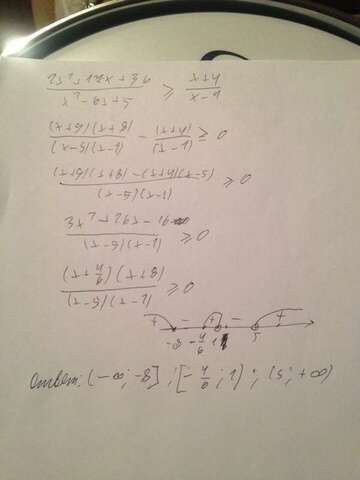 2x²+12x+36 / x²-6x+5 ≥ x+4 / x-1
(x+5)(x+8) / (x-5)(x-1) - (x+4) / (x-1) ≥ 0
(x+5)(x+8)-(x+4)(x-5) / (x-5)(x-1) ≥ 0
3x²+26x-16 / (x-5)(x-1) ≥ 0
(x+4/6)(x+8) / (x-5)(x-1) ≥ 0
+ - + - +
-8 -4/6 1 5
Ответ: (-∞; -8] ; [-4/6 ; 1) ; (5; +∞)